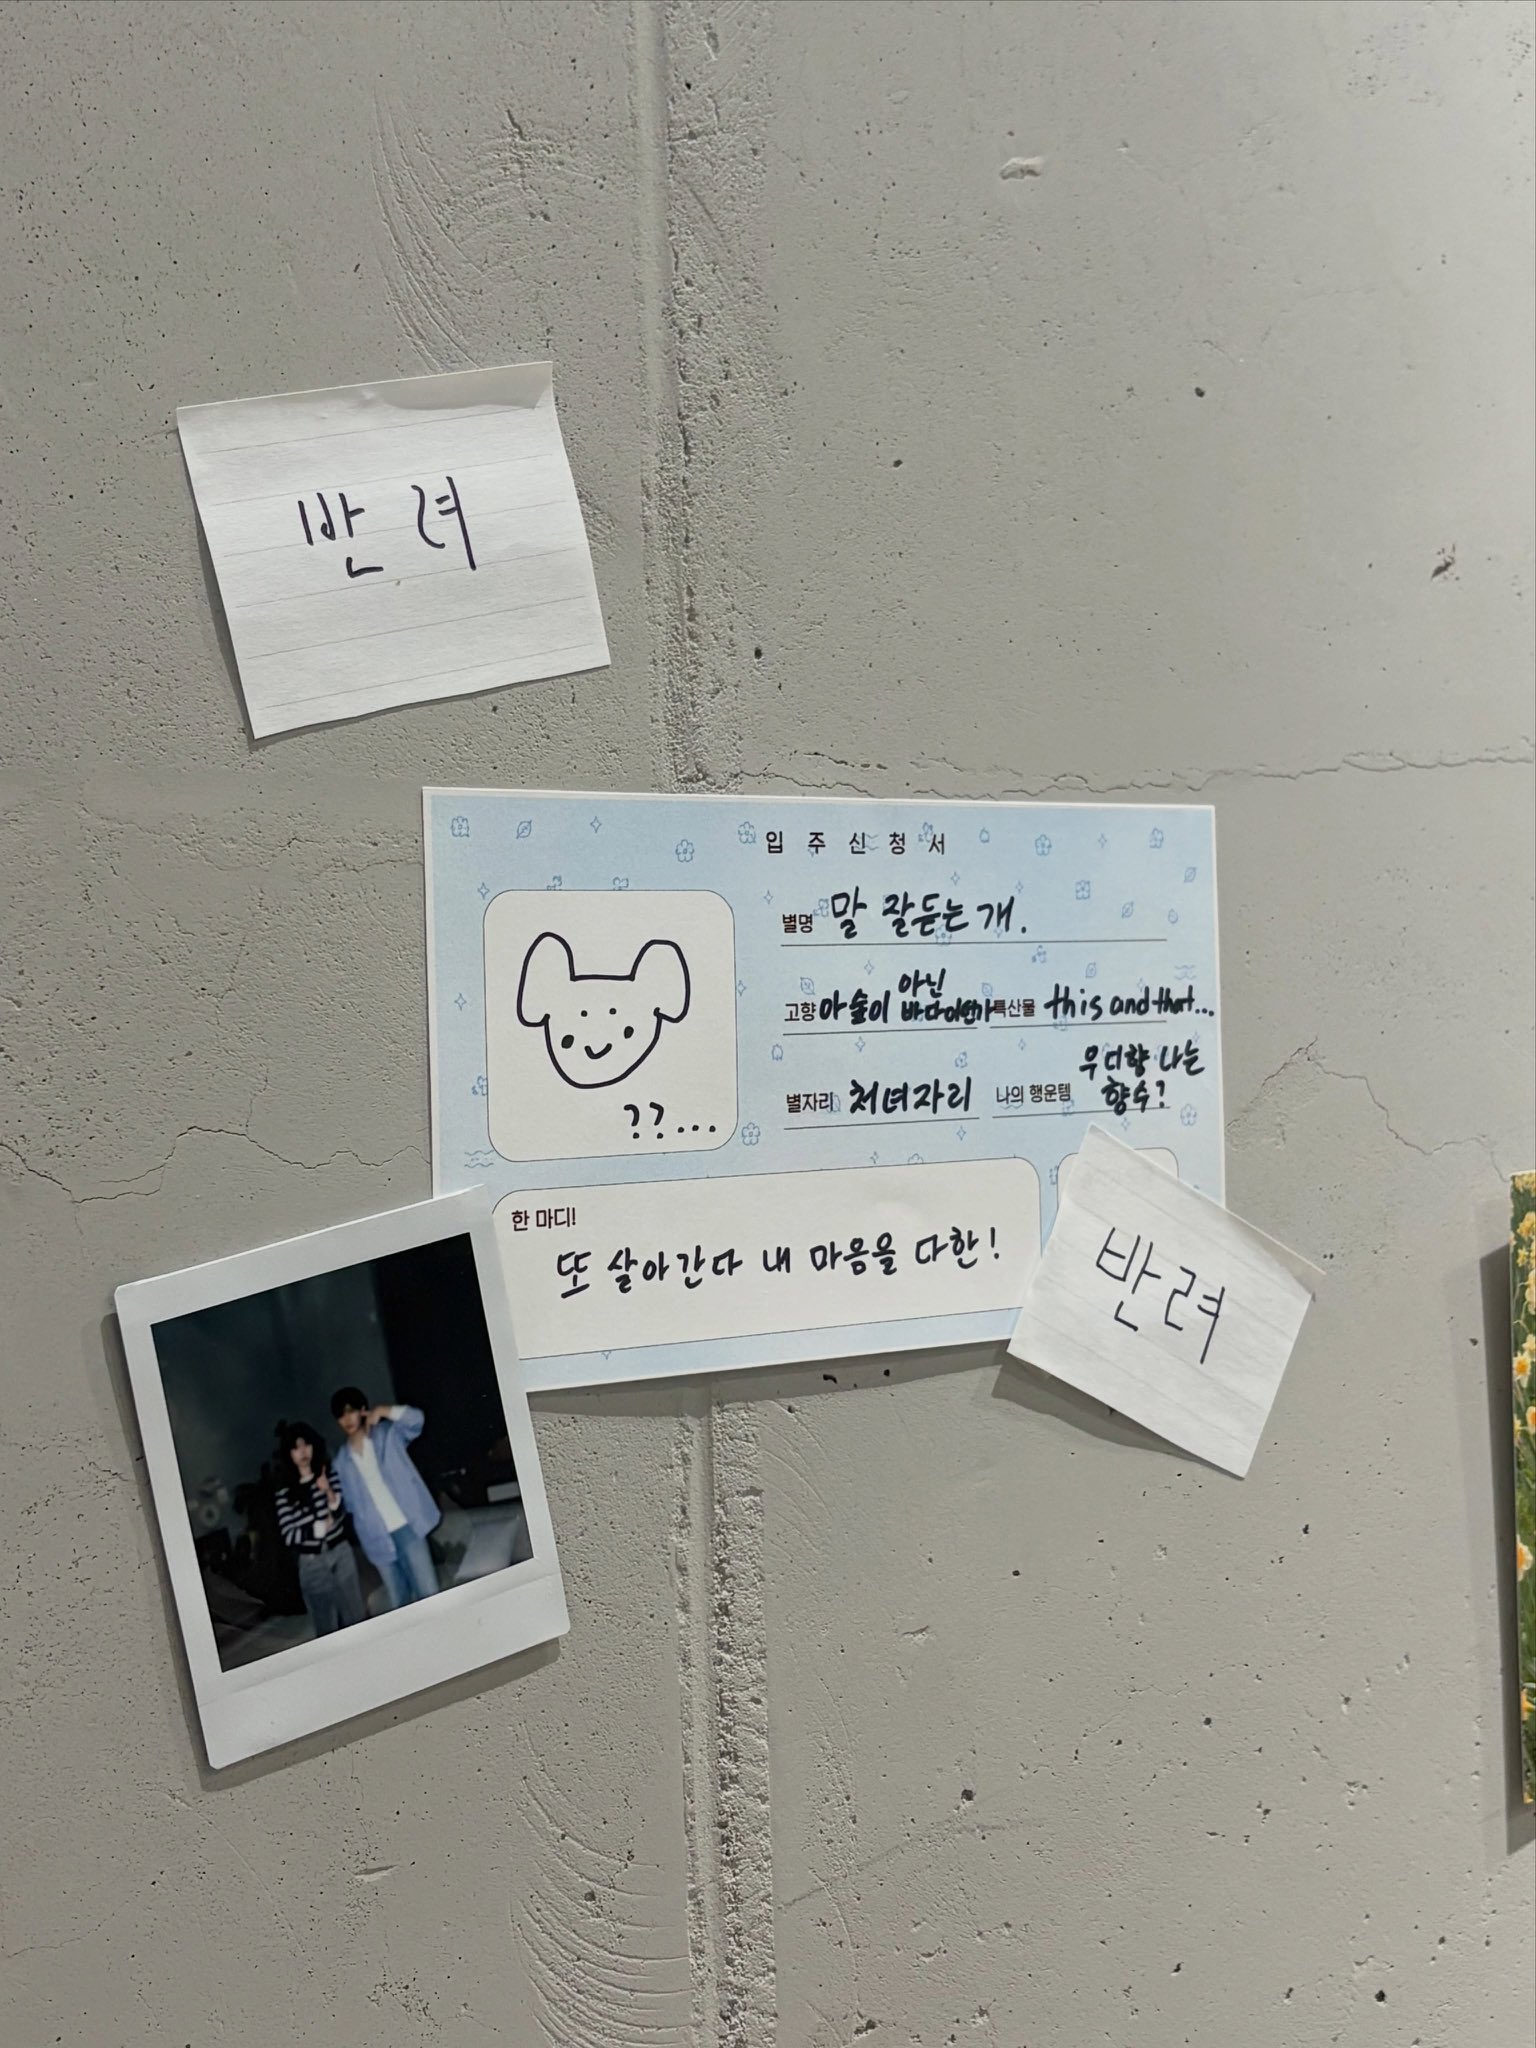 반려
입주신청서
별명 말 잘듣는 개.
아닌
고향 아 숲이 바다이던가 특산물 this and that...
우디향 나는
별자리 처녀자리 나의 행운템 향수?
??...
한 마디!
또 살아간다 내 마음을 다한!
반려